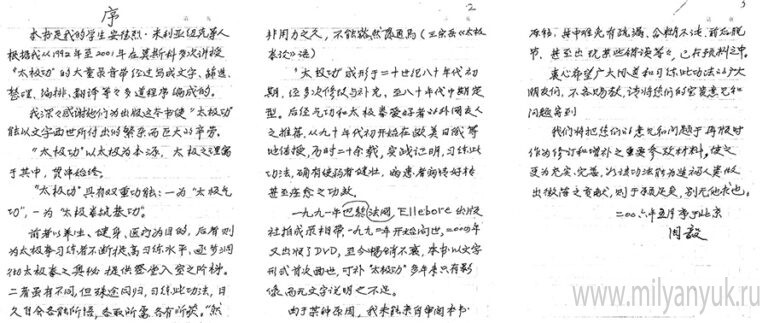 序
本书是我的学生安德烈·米利亚纽克等人
根据我从1992年至2001年在莫斯科多次讲授
"太极功"的大量录音带经过写成文字、筛选、
整理、编排、翻译等多道程序编成的。
我深深感谢他们为出版这本书使"太极功"
能以文字面世所付出的繁杂而巨大的辛劳。
"太极功"以太极为本源，太极之理寓
于其中，贯津始终。
"太极功"具有双重功能：一为"太极气
功"，一为"太极拳抗基功"。
前者以养生、健身、医疗为目的，后者则
为太极拳习练者不断提高习练水平、逐步洞
彻太极拳之奥秘提供登堂入室之阶梯。
二者虽有不同，但殊途同归，习练此功法，日
久自会各能所悟，各取所需，各有所获。"然
2
非用力之久，不能豁然贯通焉（王宗岳《太极
拳论》语）
"太极功"成形于二十世纪八十年代初
期，经多次修改与补充，至八十年代中期定
型。后经气功和太极拳爱好者以及外国友人
之推荐，从九十年代初开始在欧美日俄等
地传授，历时二十余载，实践证明，习练此
功法，确有使弱者健壮，病患者病情好转
甚至痊愈之功效。
一九九一年巴黎法网，Ellebore出版
社拍成录相带，一九九一年开始问世，二〇〇四年
又出版了DVD，至今畅销不衰，本书以文字
形式首次面世，可补"太极功"多年来只有影
像，而无文字说明之不足。
由于某种原因，我未能亲自审阅本书
3
冻结，其中难免有疏漏、分糊不清、前后脱
节、甚至出现某些错误等，已在预料之中。
衷心希望广大同道和习练此功法之广大
朋友们，不吝赐教，请将你们的宝贵意见和
问题寄到
我们将把你们的意见和问题于再版时
作为修订和增补之重要参考材料，使之
更为充实、完善，为该功法能为造福人类做
出微薄之贡献，则于愿足矣，别无他求也。
二〇〇六年五月 序于北京
周毅
www.milyanyuk.ru